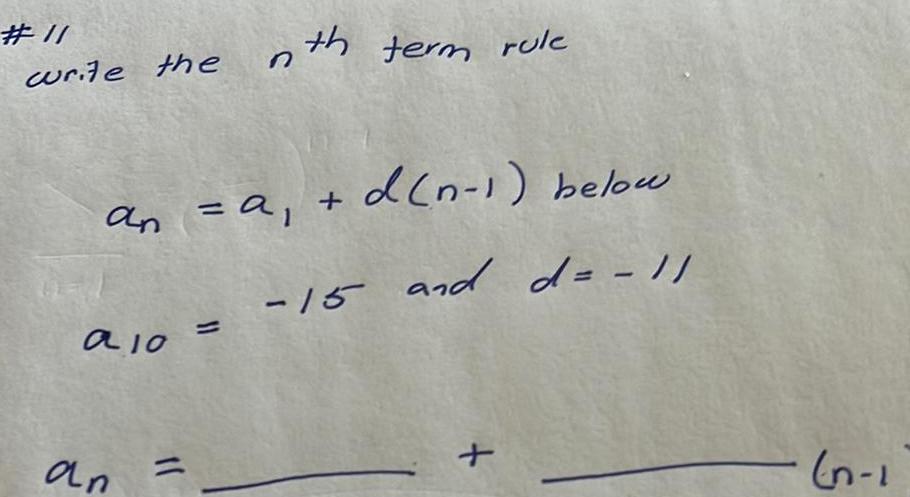 # 11
write the nth term rule
an = a1 + d(n-1) below
a10 = -15 and d = -11
an = ______ + ______ (n-1)